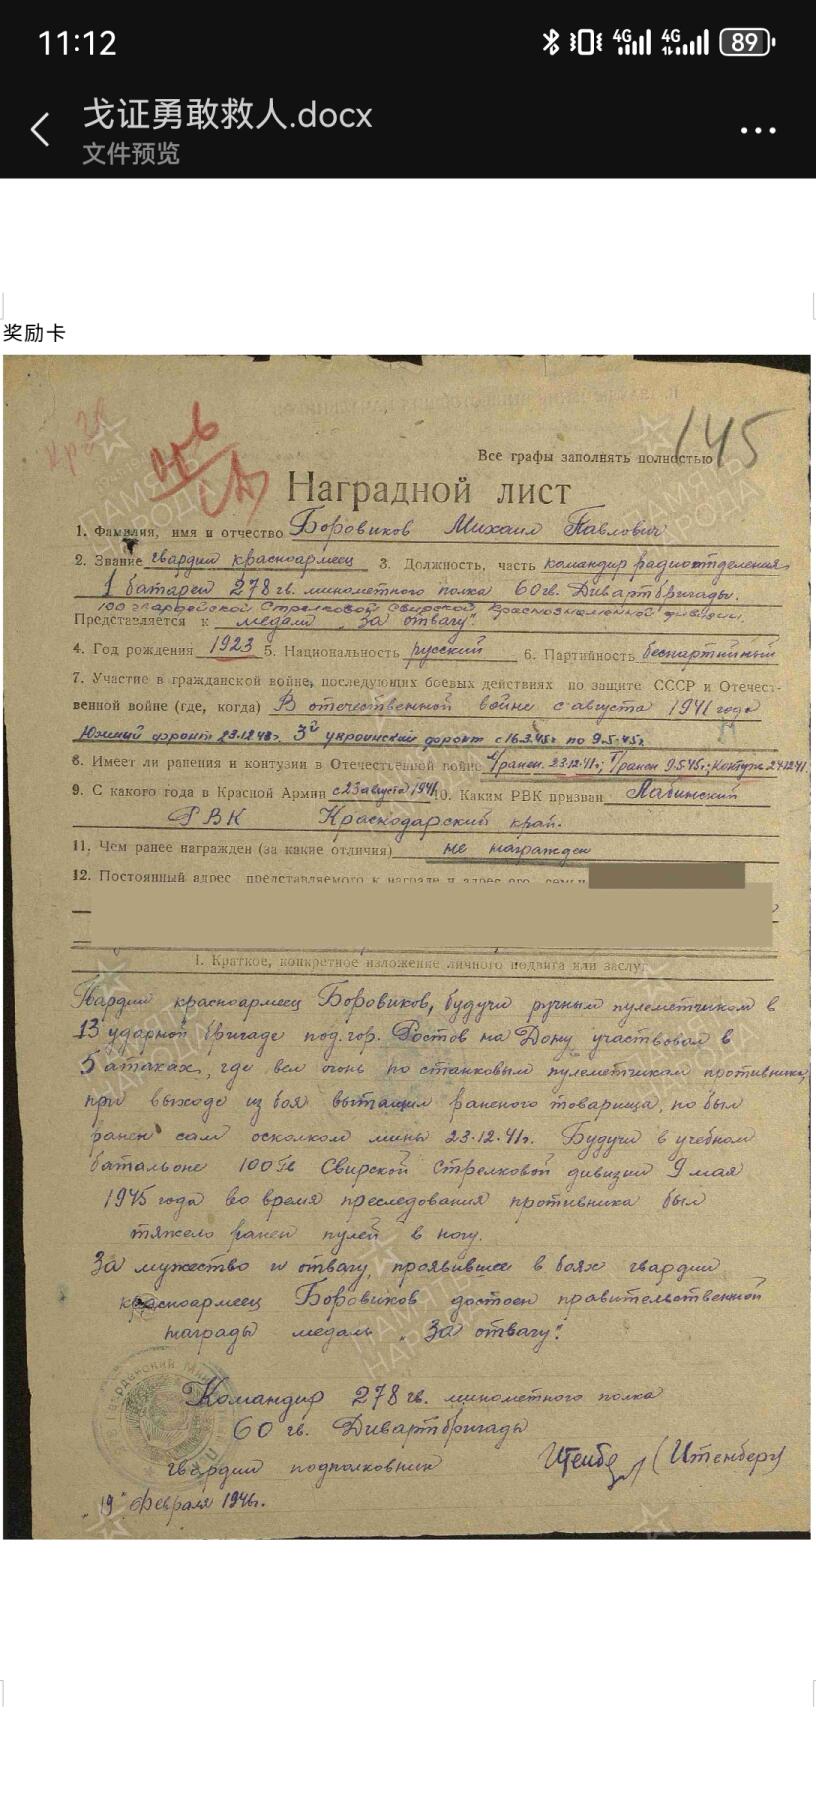 11:12
4G 4G 89
戈证勇敢救人.docx
文件预览
奖励卡
145
Все графы заполнять полностью
Наградной лист
1. Фамилия, имя и отчество Боровиков Михаил Павлович
2. Звание гвардии красноармеец 3. Должность, часть командир радиоотделения
1 батареи 278 гв. минометного полка 60 гв. Дивартбригады.
100 гвардейской Стрелковой Свирской Краснознаменной дивизии.
Представляется к медали "За отвагу".
4. Год рождения 1923 5. Национальность русский 6. Партийность беспартийный
7. Участие в гражданской войне, последующих боевых действиях по защите СССР и Отечест-
венной войне (где, когда) В отечественной войне с августа 1941 года
Южный фронт 23.12.41г. 3й украинский фронт с 16.3.45г. по 9.5.45г.
8. Имеет ли ранения и контузии в Отечественной войне л/ранен 23.12.41г.; т/ранен 9.5.45г.; Контуж. 24.12.41
9. С какого года в Красной Армии с 23 августа 1941 10. Каким РВК призван Лабинский
РВК Краснодарский край.
11. Чем ранее награжден (за какие отличия) не награжден
12. Постоянный адрес представляемого к награде и адрес его семьи
I. Краткое, конкретное изложение личного подвига или заслуг
Гвардии красноармеец Боровиков, будучи ручным пулеметчиком в
13 ударной бригаде под гор. Ростов на Дону участвовал в
5 атаках, где вел огонь по станковым пулеметчикам противника,
при выходе из боя вытащил раненого товарища, но был
ранен сам осколком мины 23.12.41г. Будучи в учебном
батальоне 100 Гв Свирской Стрелковой дивизии 9 мая
1945 года во время преследования противника был
тяжело ранен пулей в ногу.
За мужество и отвагу, проявившие в боях гвардии
красноармеец Боровиков достоен правительственной
награды медаль "За отвагу".
Командир 278 гв. минометного полка
60 гв. Дивартбригады
гвардии подполковник (Итенберг)
"19" февраля 1946г.
ПАМЯТЬ
НАРОДА